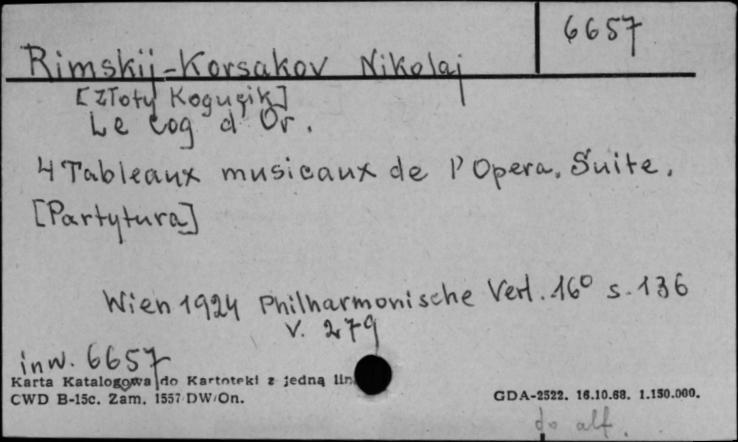 6657
Rimskij-Korsakov Nikolaj
[Złoty Kogucik]
Le Coq d'Or.
4 Tableaux musicaux de l'Opera. Suite.
[Partytura]
Wien 1924 Philharmonische Verl. 16° s. 136
V. 279
inw. 6657
Karta Katalogowa do Kartoteki z jedną lin
CWD B-15c. Zam. 1557 DW/On.
GDA-2522. 16.10.68. 1.150.000.
do alf.